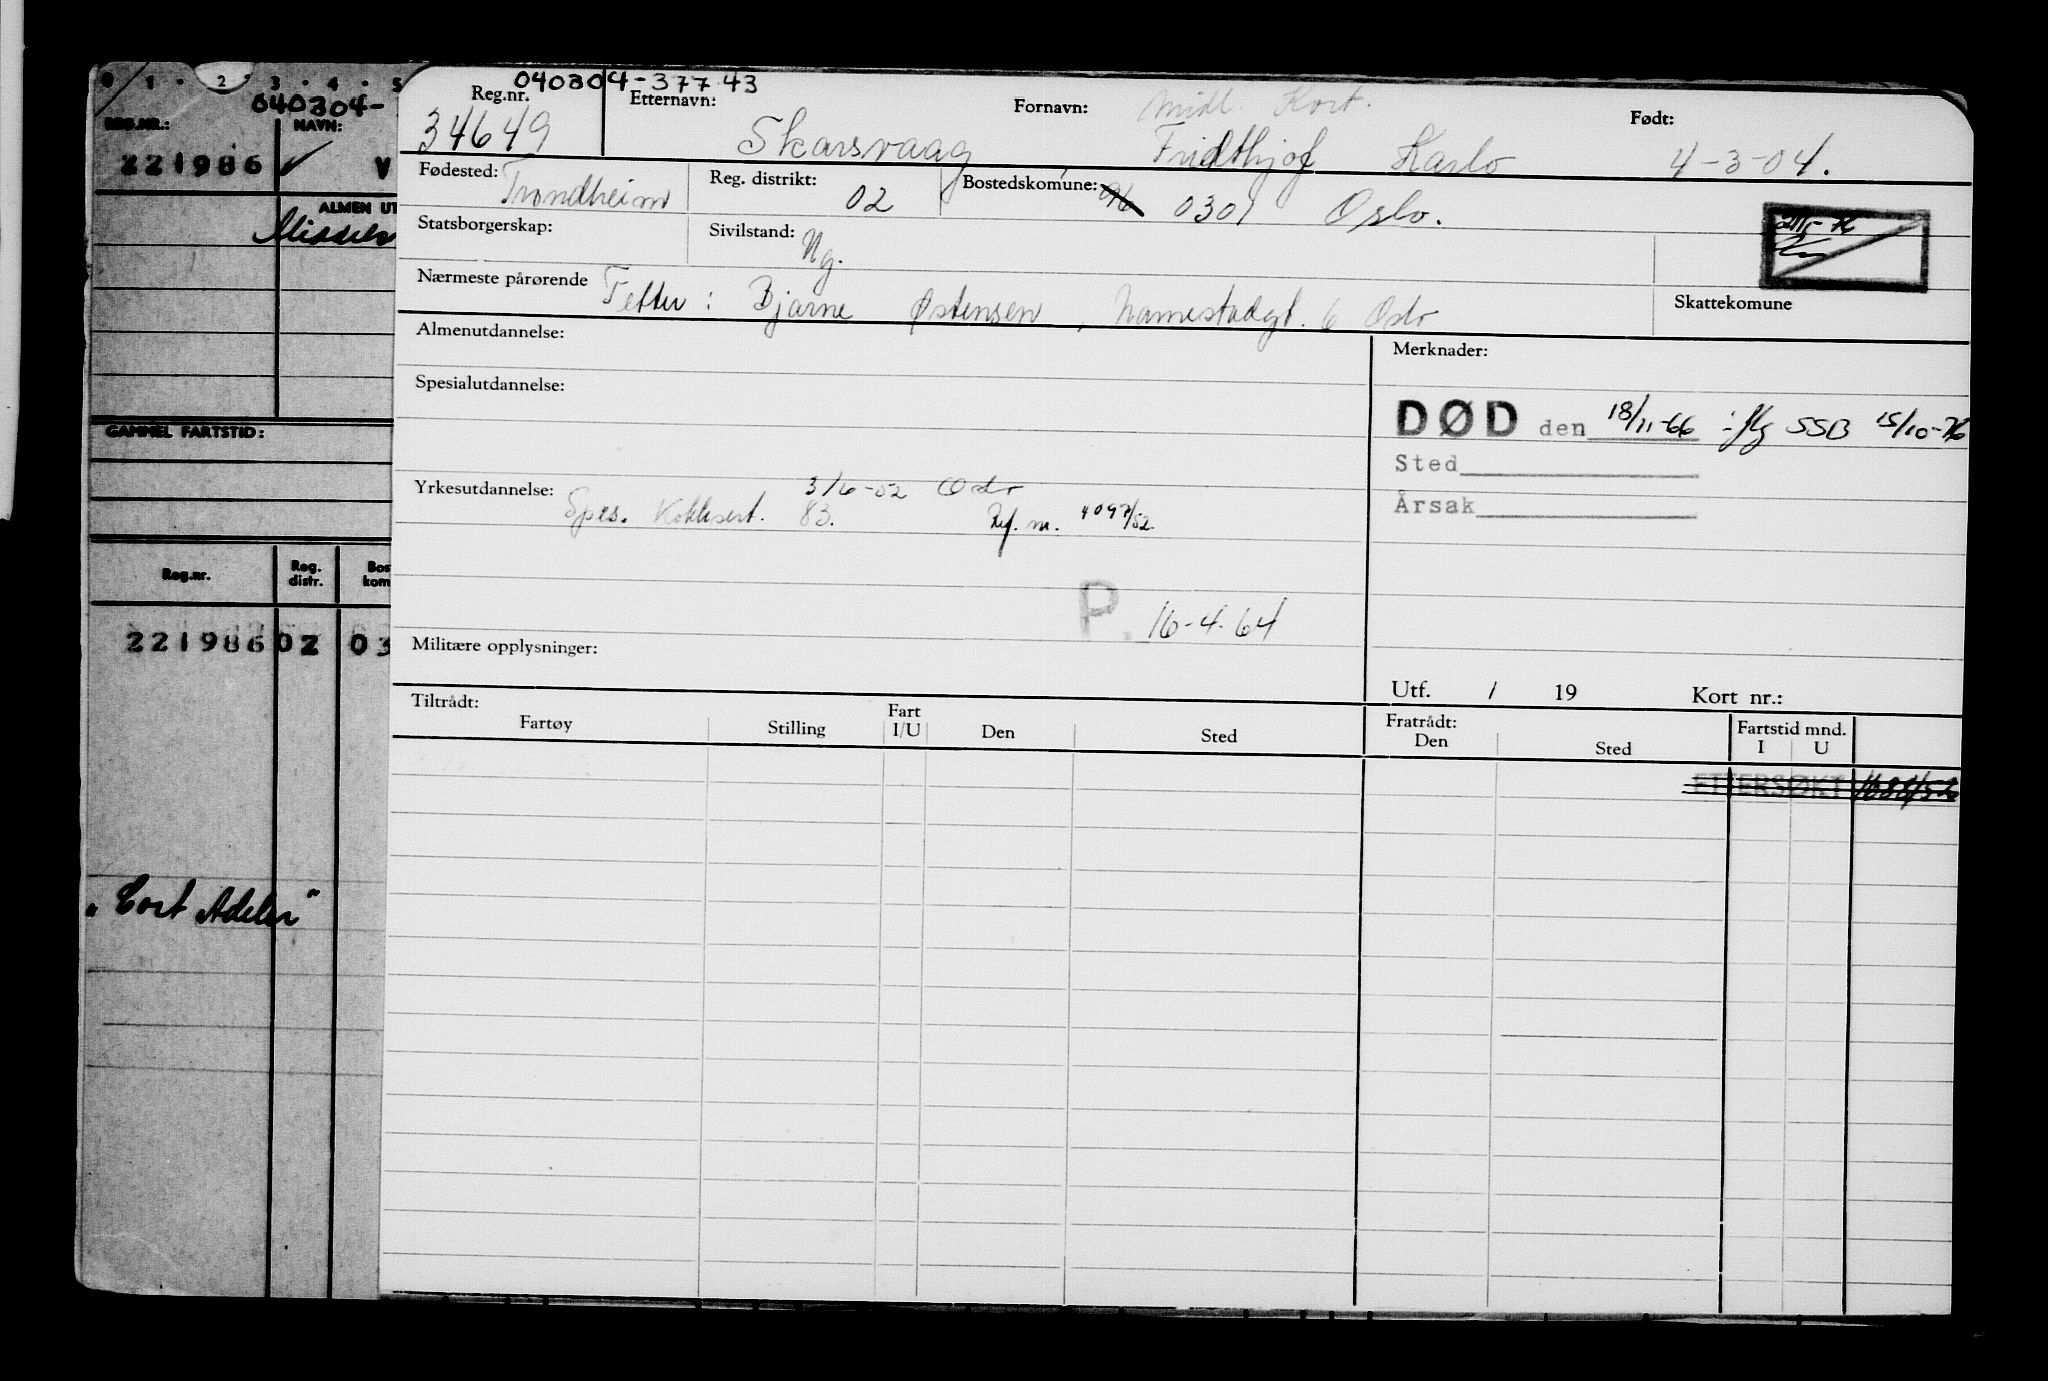 0 1 · 2 · 3 · 4 · 5
040304-
REG.NR.: NAVN:
221986 ✓ V
ALMEN UT
Middels
GAMMEL FARTSTID:
Reg.nr. Reg. distr. Bos kom
221986 02 03
"Cort Adeler"
040304-37743
Reg.nr. Etternavn: Fornavn: Midl. Kort. Født:
34649 Skarsvaag, Fridthjof Karlo 4-3-04.
Fødested: Trondheim Reg. distrikt: 02 Bostedskomune: 0301 Oslo.
Statsborgerskap: Sivilstand: Ug.
Nærmeste pårørende Fetter: Bjarne Østensen, 6 Oslo
Skattekomune
Almenutdannelse: Merknader:
Spesialutdannelse:
DØD den 18/11-66 iflg SSB 15/10-76
Sted
Årsak
Yrkesutdannelse: 3/6-52 Oslo
Spes. Kokksert. 83. Ref. nr. 4097/52
P. 16-4-64
Militære opplysninger:
Utf. / 19 Kort nr.:
Tiltrådt: Fratrådt: Fartstid mnd.
Fartøy Stilling Fart I/U Den Sted Den Sted I U
ETTERSØKT